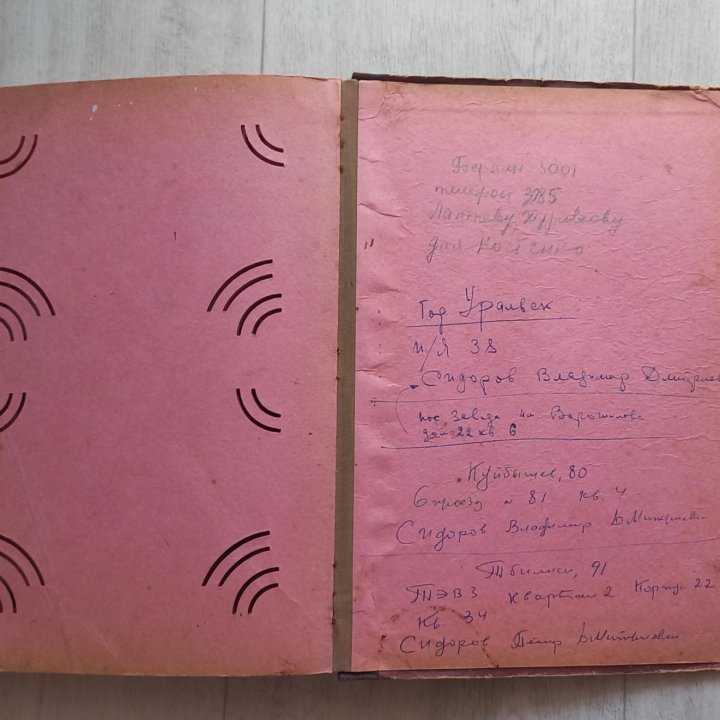 Берлин 3001
телефон 285
Лаптеву
для Костенко
Гор Уральск
п/я 38
Сидоров Владимир Дмитриев
пос. Завода им. Ворошилова
дом 22 кв. 6
Куйбышев, 80
6 проезд № 81 кв. 4
Сидоров Владимир Дмитриевич
Тбилиси, 91
ТЭВЗ квартал 2 Корпус 22
Кв. 34
Сидоров Петр Дмитриевич